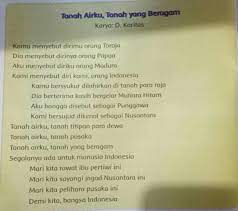 Tanah Airku, Tanah yang Beragam
Karya: D. Karitas
Kamu menyebut dirimu orang Toraja
Dia menyebut dirinya orang Papua
Aku menyebut diriku orang Madura
Kami menyebut diri kami, orang Indonesia
Kamu bersyukur dilahirkan di tanah para raja
Dia berterima kasih bergelar Mutiara Hitam
Aku bangga disebut sebagai Punggawa
Kami bersujud dikenal sebagai Nusantara
Tanah airku, tanah titipan para dewa
Tanah airku, tanah pusaka
Tanah airku, tanah yang beragam
Segalanya ada untuk manusia Indonesia
Mari kita rawat ibu pertiwi ini
Mari kita sayangi jagad Nusantara ini
Mari kita pelihara pusaka ini
Demi kita, bangsa Indonesia